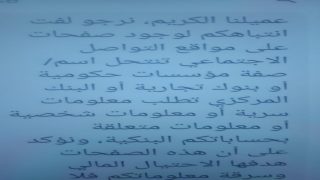 عميلنا الكريم، نرجو لفت
انتباهكم لوجود صفحات
على مواقع التواصل
الاجتماعي تنتحل اسم/
صفة مؤسسات حكومية
أو بنوك تجارية أو البنك
المركزي تطلب معلومات
سرية أو معلومات شخصية
أو معلومات متعلقة
بحساباتكم البنكية. ونؤكد
على أن هذه الصفحات
هدفها الاحتيال المالي
وسرقة معلوماتكم فلا